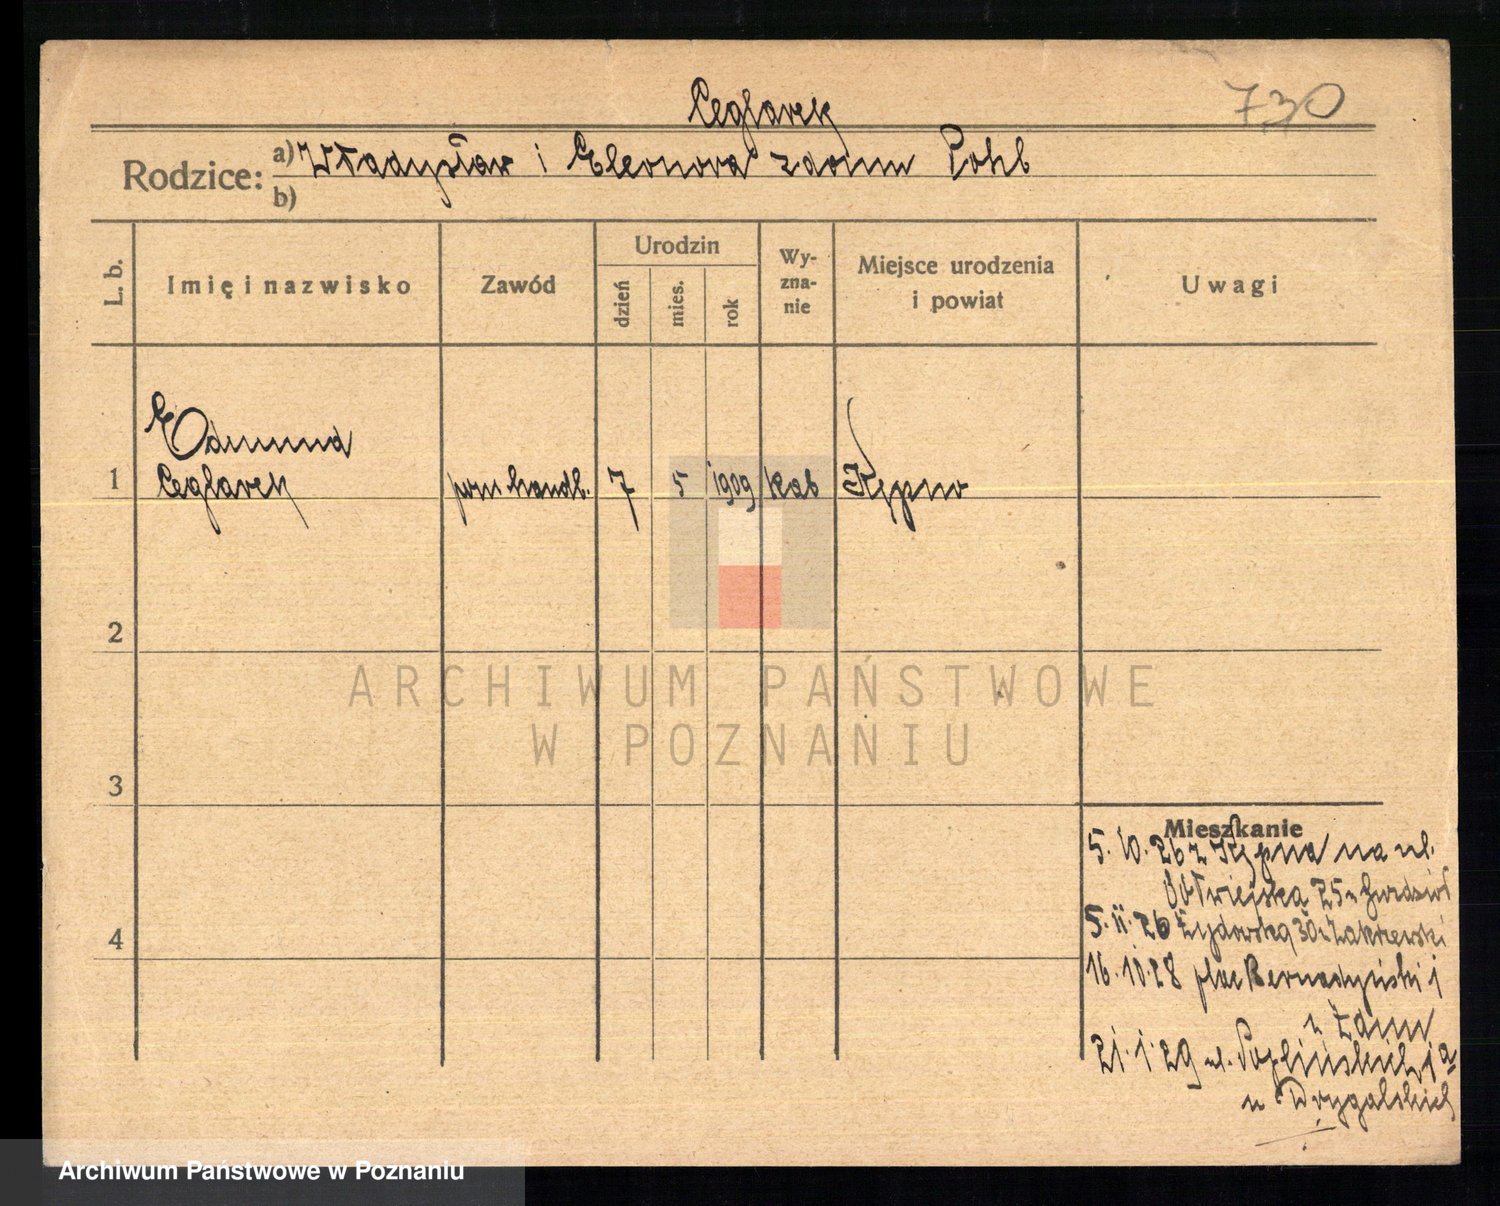 Ceglarek
730
Rodzice: a) Władysław i Eleonora zdomu Pohl
b)
L. b.
Imię i nazwisko
Zawód
Urodzin
dzień
mies.
rok
Wy-
zna-
nie
Miejsce urodzenia
i powiat
Uwagi
Edmund
1 Ceglarek handl. 7 5 1909 kat Kępno
2
ARCHIWUM PAŃSTWOWE
W POZNANIU
3
Mieszkanie
5.10.26 z Kępna na ul.
Półwiejska 25 u
4
5.11.26 Żydowska 30 u Zakrzewski
16.10.28 plac Bernadyński 1
u
21.1.29 ul.
u Drygalskich
Archiwum Państwowe w Poznaniu